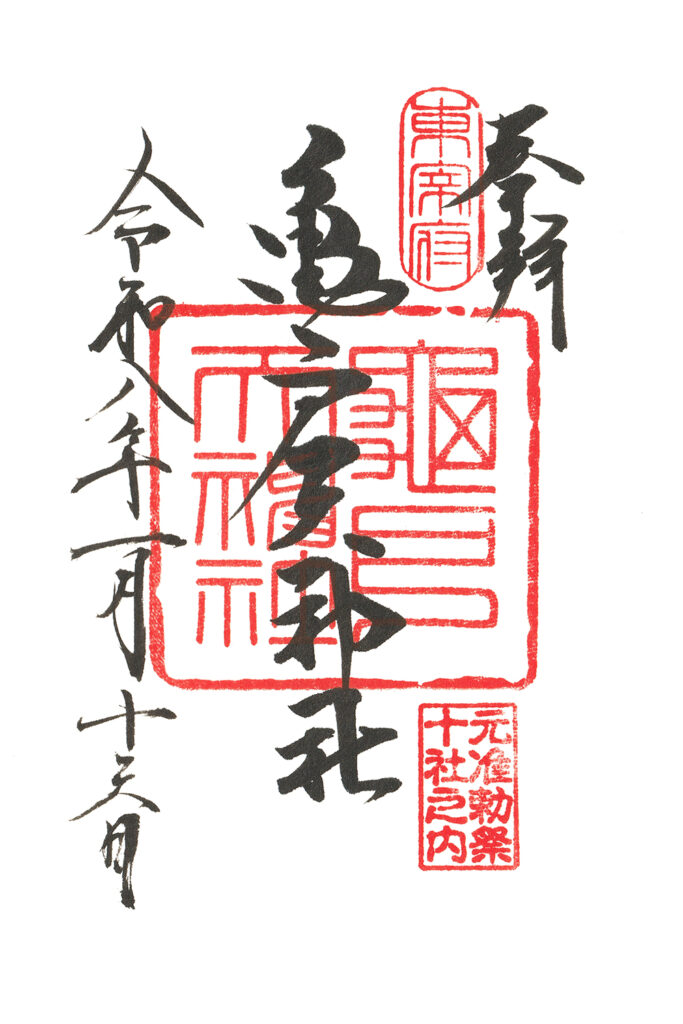 奉拝
東宰府
亀戸天神社
龜戸
天神社
元准勅祭
十社之内
令和八年一月十六日